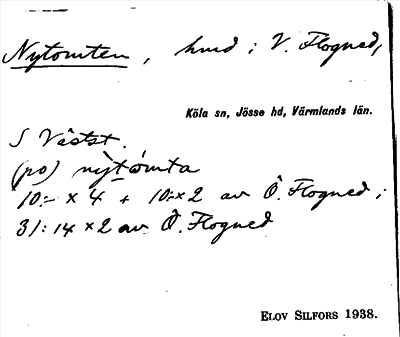 Nytomten, hmd i V. Flogned,
Köla sn, Jösse hd, Värmlands län.
S Västst.
(på) nỳtòmta
10:- × 4 + 10:- × 2 av Ö. Flogned;
31:14 × 2 av Ö. Flogned
ELOV SILFORS 1938.